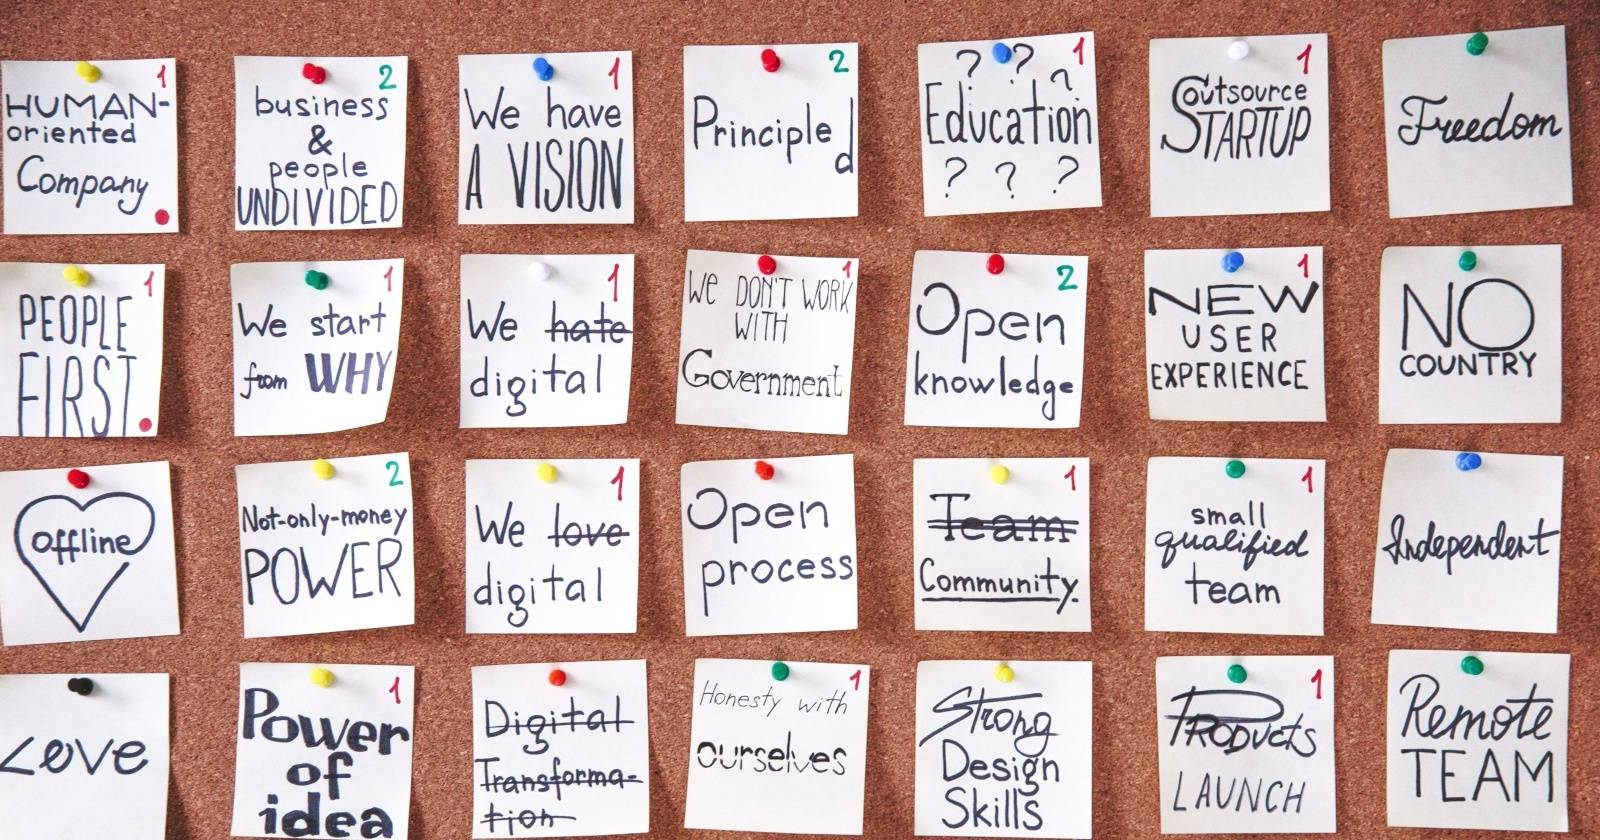 1
HUMAN-
oriented
Company
2
business
&
people
UNDIVIDED
1
We have
A VISION
2
Principled
1
? ? ?
Education
? ? ?
1
Outsource
STARTUP
Freedom
1
PEOPLE
FIRST.
1
We start
from WHY
1
We hate
digital
1
We DON'T WORK
WITH
Government
2
Open
knowledge
1
NEW
USER
EXPERIENCE
NO
COUNTRY
offline
2
Not-only-money
POWER
1
We love
digital
Open
process
1
Team
Community.
1
small
qualified
team
Independent
Love
1
Power
of
idea
Digital
Transforma-
tion
1
Honesty with
ourselves
Strong
Design
Skills
1
PRODUCTS
LAUNCH
Remote
TEAM